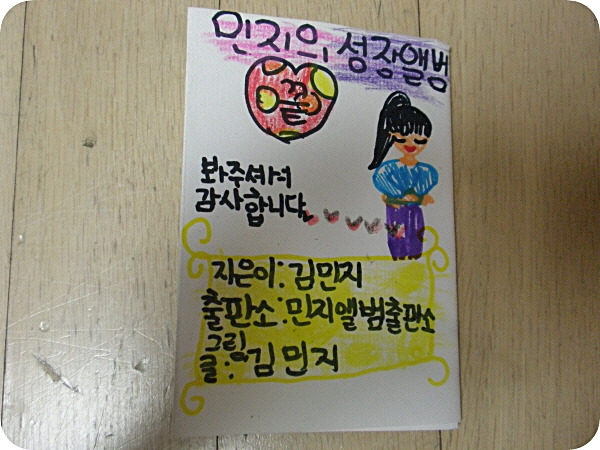 민지의 성장앨범
끝
봐주셔서
감사합니다.
지은이: 김민지
출판소: 민지앨범출판소
그림
글: 김민지